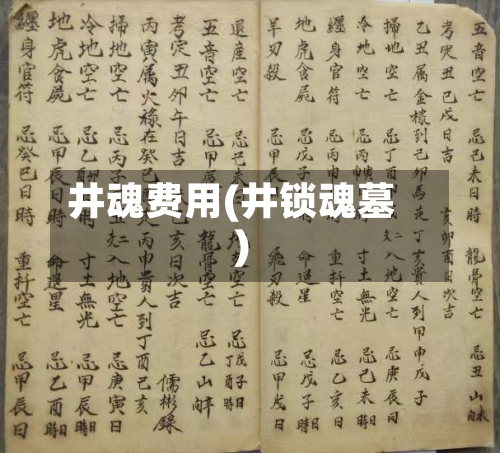 井魂费用(井锁魂墓
)
五音空亡 忌己未日時 龍骨空亡 忌丑山未
考定丑己戌日吉 亥卯酉日次吉
乙丑属金祿到己卯馬 丁亥貴人到甲申戊子
掃地空亡 忌丁 入地空亡 忌庚辰日
冷地空亡 忌丙 寸土無光 忌己未時
纏身官符 忌丙 重抖空亡 忌乙亥日
地虎食屍 忌戊子 星 忌戊子時
羊刃殺 忌甲 飛刃殺 忌甲戌日
退産空亡 忌己未 忌丁戊子日時
五音空亡 忌甲辰 龍骨空亡 忌乙山
考定丑卯午日吉 亥日次吉 儒彬錄
丙寅属火祿在癸巳 丙申貴人到丁酉己亥
掃地空亡 忌丙子 入地空亡 忌庚寅日
冷地空亡 忌乙卯 寸土無光 忌甲辰日時
地虎食屍 忌甲辰日 命 星 忌乙酉日時
纏身官符 忌癸巳日時 重抖空亡 忌甲辰日